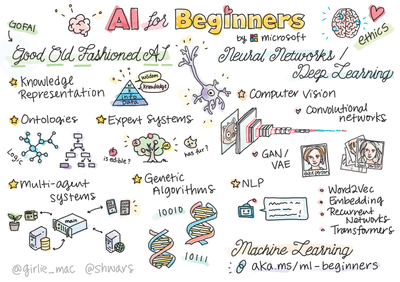 GOFAI
AI for Beginners
by Microsoft
ethics
Good Old Fashioned AI
Knowledge
Representation
wisdom
Knowledge
info
Data
Ontologies
Logic
Expert Systems
is edible?
has fur?
Multi-agent
systems
main
Genetic
Algorithms
10010
10111
Neural Networks /
Deep Learning
Computer Vision
Convolutional
networks
GAN/
VAE
NLP
Word2Vec
Embedding
Recurrent
Networks
Transformers
Machine Learning
aka.ms/ml-beginners
@girlie_mac @shwars